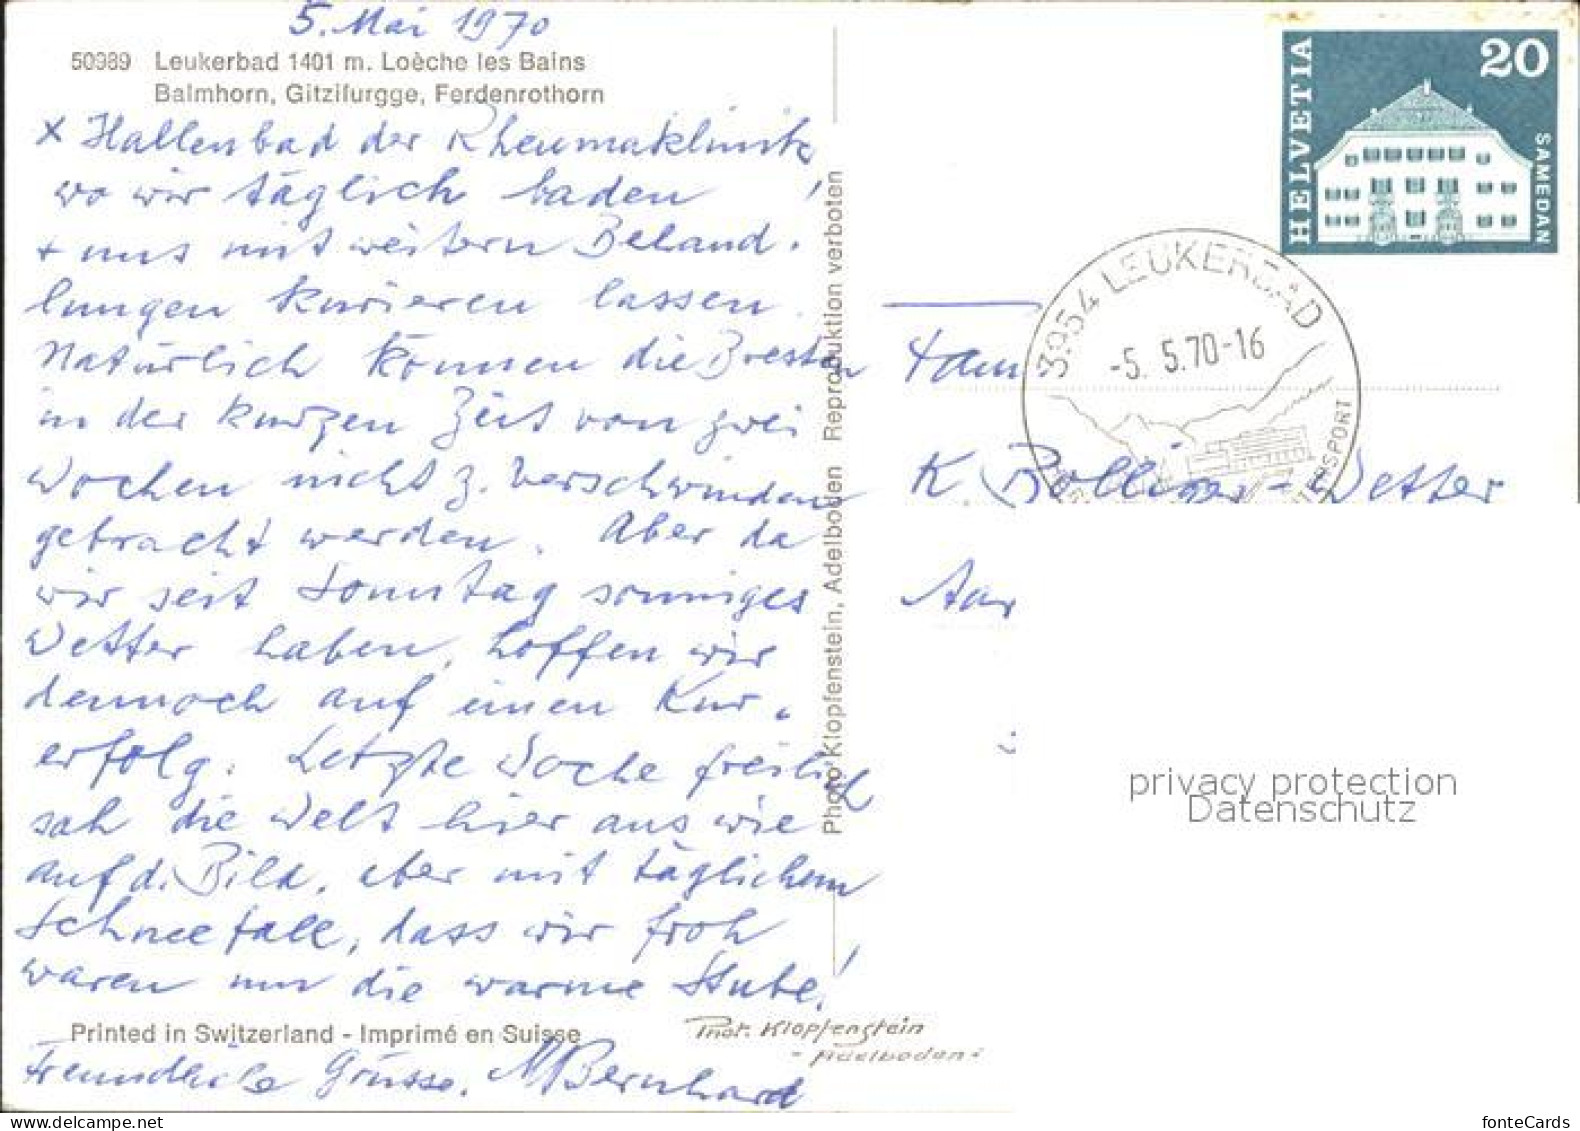 5. Mai 1970
50989 Leukerbad 1401 m. Loèche les Bains
Balmhorn, Gitzifurgge, Ferdenrothorn
x Hallenbad der Rheumaklinik
wo wir täglich baden !
+ uns mit weitern Behand-
lungen kurieren lassen.
Natürlich können die Bresten
in der kurzen Zeit von zwei
Wochen nicht z. Verschwinden
gebracht werden. Aber da
wir seit Sonntag sonniges
Wetter haben, hoffen wir
dennoch auf einen Kur-
erfolg. Letzte Woche freilich
sah die Welt hier aus wie
auf d. Bild, aber mit täglichem
Schneefall, dass wir froh
waren um die warme Stube!
Printed in Switzerland - Imprimé en Suisse
Freundliche Grüsse, M Bernhard
Photo Klopfenstein, Adelboden Reproduktion verboten
Phot. Klopfenstein
- Adelboden -
HELVETIA
20
SAMEDAN
3954 LEUKERBAD
-5. 5.70-16
Fam
K Bolliger-Vetter
Aar
privacy protection
Datenschutz
fonteCards